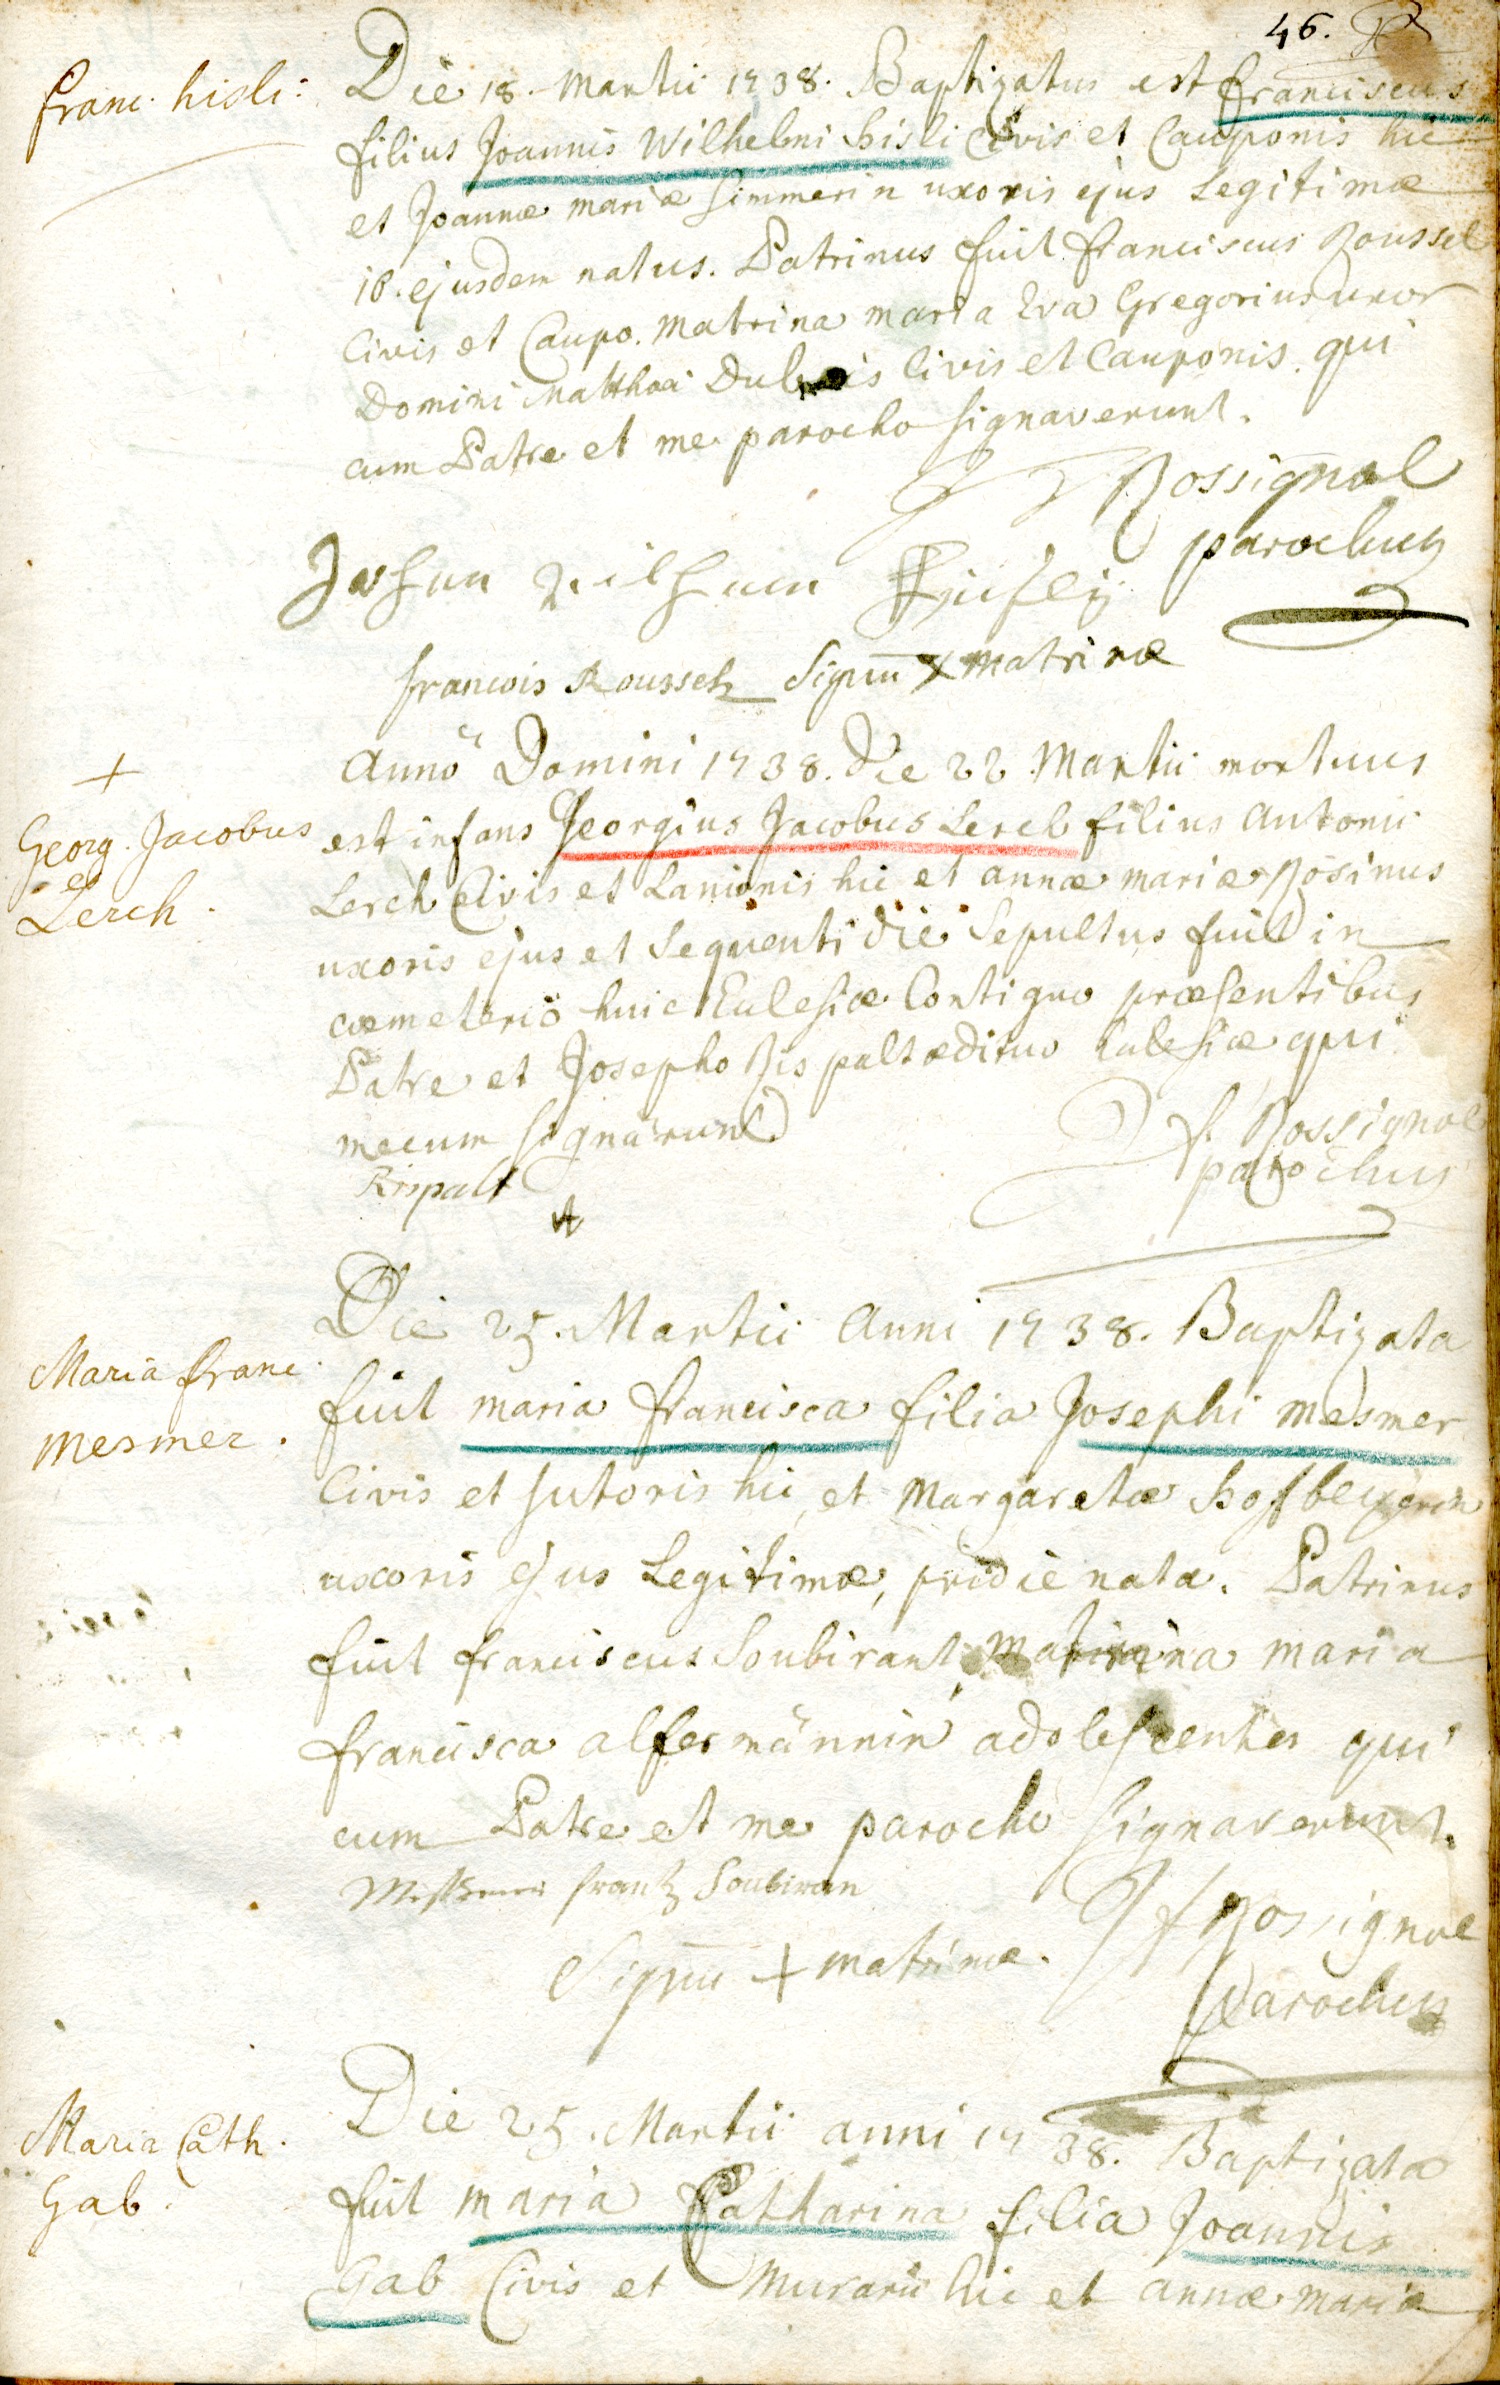 46.
Franc. hisli:
Die 18. Martii 1738. Baptizatus est franciscus
filius Joannis Wilhelmi hisli Civis et Cauponis hic
et Joannæ mariæ Simmerin uxoris ejus Legitimæ
18. ejusdem natus. Patrinus fuit franciscus Roussel
Civis et Caupo. Matrina maria Eva Gregorius uxor
Domini Matthæi Civis et Cauponis. qui
cum Patre et me parocho signaverunt.
Rossignol
parochus
Johan
francois Roussel Signū X matrinæ
+
Georg. Jacobus
Lerch.
Anno Domini 1738. die 22 Martii mortuus
est infans Georgius Jacobus Lerch filius Antonii
Lerch Civis et Lanionis hic et annæ mariæ Rosinus
uxoris ejus et sequenti die Sepultus fuit in
cæmeterio huic Eclesiæ Contiguo præsentibus
Patre et Josepho Rispalt ædituo Eclesiæ qui
mecum signarunt
f. Rossignol
parochus
Rispalt
Maria Franc.
Mesmer.
Die 25. Martii Anni 1738. Baptizata
fuit maria francisca filia Josephi mesmer
Civis et sutoris hic, et Margaretæ
uxoris ejus Legitimæ, pridie nata. Patrinus
fuit franciscus Soubirant, Matrina maria
francisca alfermännin adolescentes qui
cum Patre et me parocho signaverunt.
frantz Soubiran
f Rossignol
Signū + matrinæ.
Parochus
Maria Cath.
Gab.
Die 25. Martii anni 1738. Baptizata
fuit maria Catharina filia Joannis
Gab Civis et Murarii hic et annæ mariæ